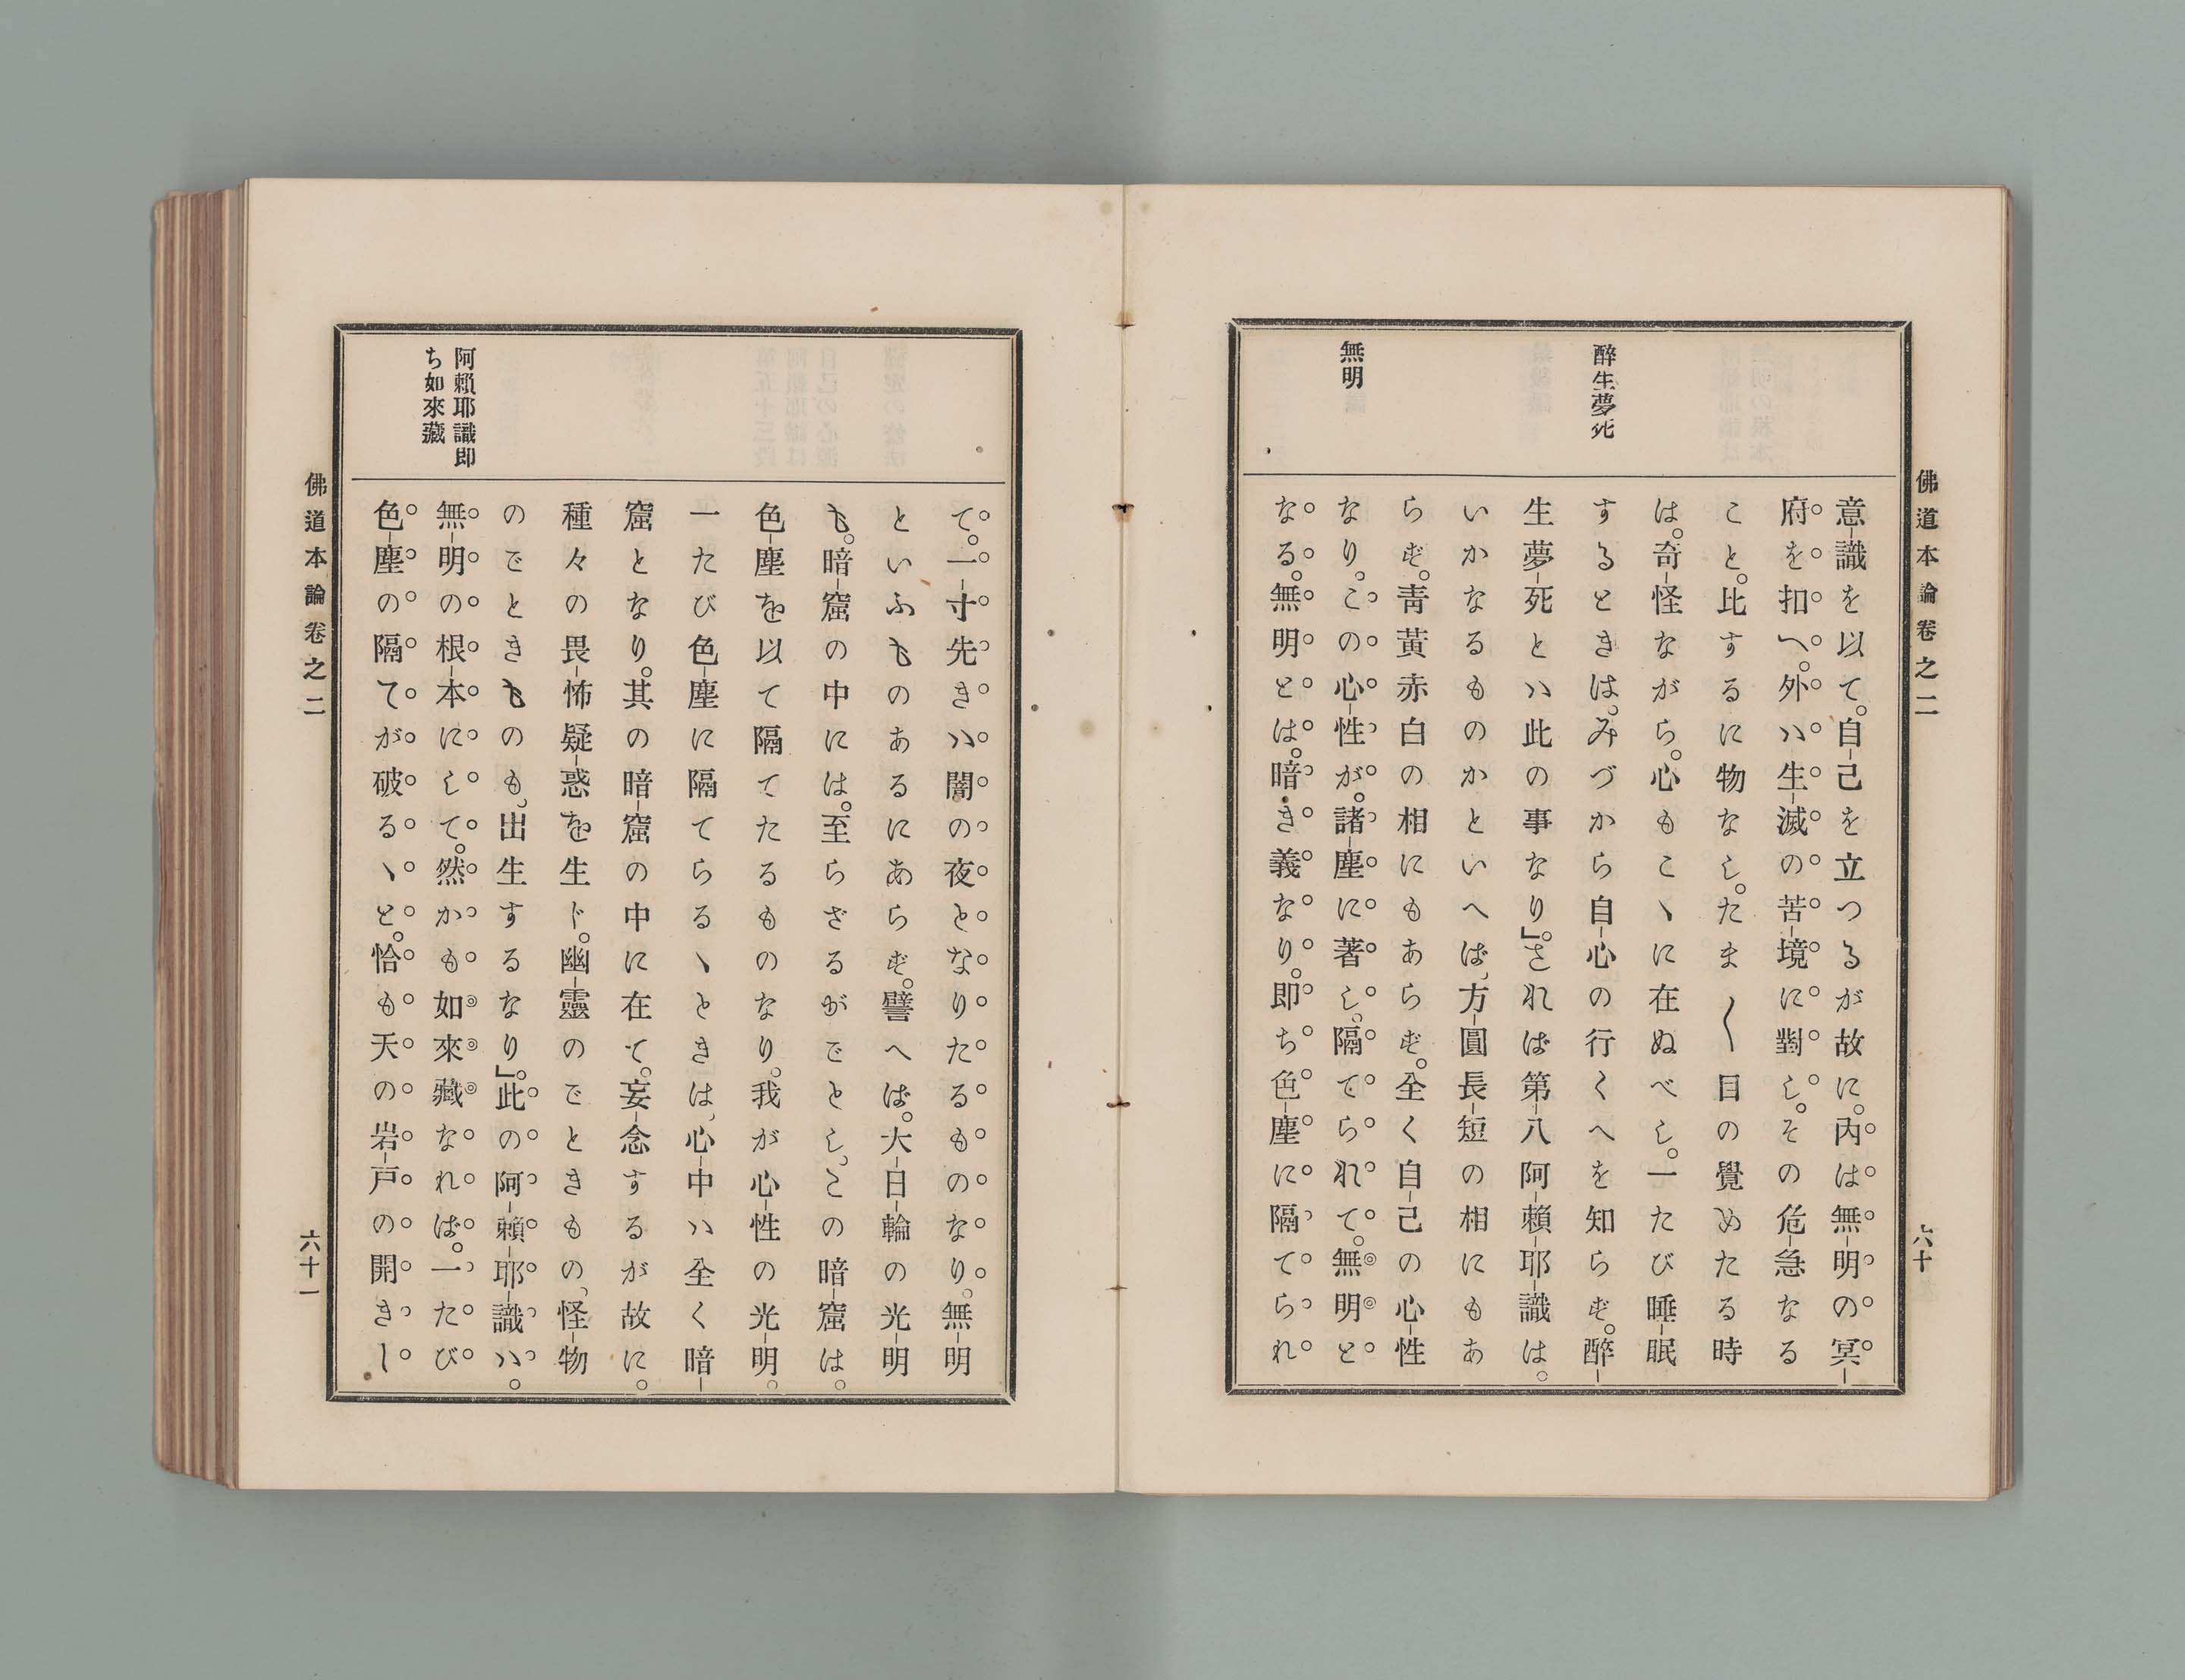 佛道本論卷之二
六十
醉生夢死
無明
意識を以て。自己を立つるが故に。内は無明の冥
府を扣へ。外ハ生滅の苦境に對し。その危急なる
こと。比するに物なし。たま〱目の覺めたる時
は。奇怪ながら。心もこヽに在ぬべし。一たび睡眠
するときは。みづから自心の行くへを知らず。醉
生夢死とハ此の事なり」。されば第八阿賴耶識は。
いかなるものかといへば、方圓長短の相にもあ
らず。青黃赤白の相にもあらず。全く自己の心性
なり。この心性が。諸塵に著し。隔てられて。無明と
なる。無明とは。暗き義なり。即ち色塵に隔てられ
て。一寸先きハ闇の夜となりたるものなり。無明
といふものあるにあらず。譬へば。大日輪の光明
も。暗窟の中には。至らざるがごとし。この暗窟は。
色塵を以て隔てたるものなり。我が心性の光明。
一たび色塵に隔てらるヽときは、心中ハ全く暗
窟となり。其の暗窟の中に在て。妄念するが故に。
種々の畏怖疑惑を生ド。幽靈のごときもの、怪物
のごときものも、出生するなり」。此の阿賴耶識ハ。
無明の根本にして。然かも如來藏なれば。一たび
色塵の隔てが破るヽと。恰も天の岩戸の開きし
阿賴耶識即
ち如來藏
佛道本論卷之二
六十一